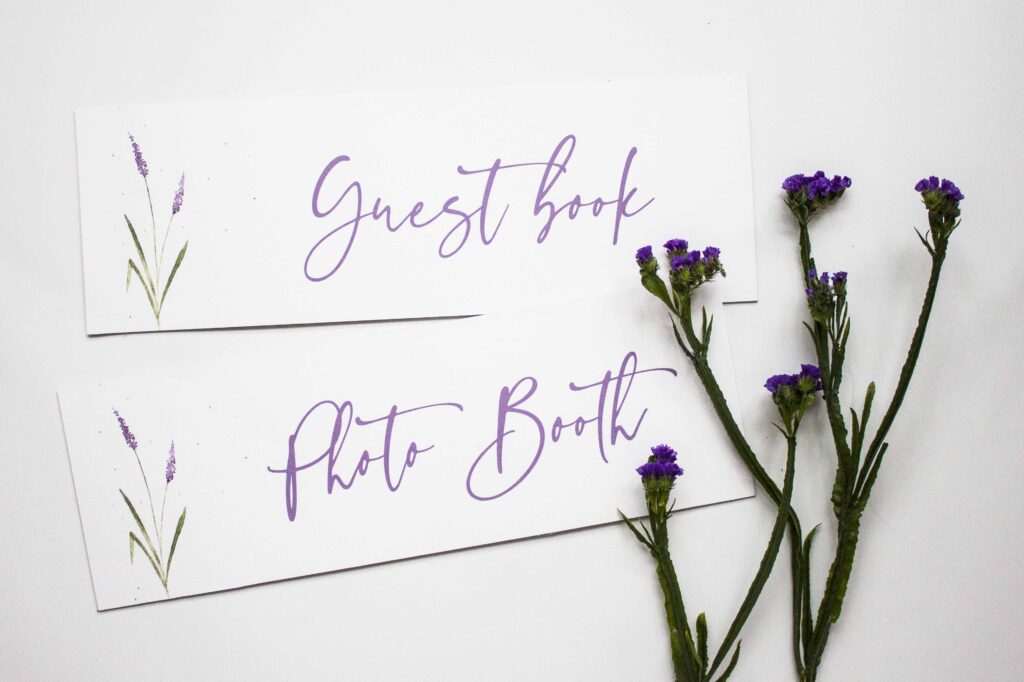 Guest book
Photo Booth